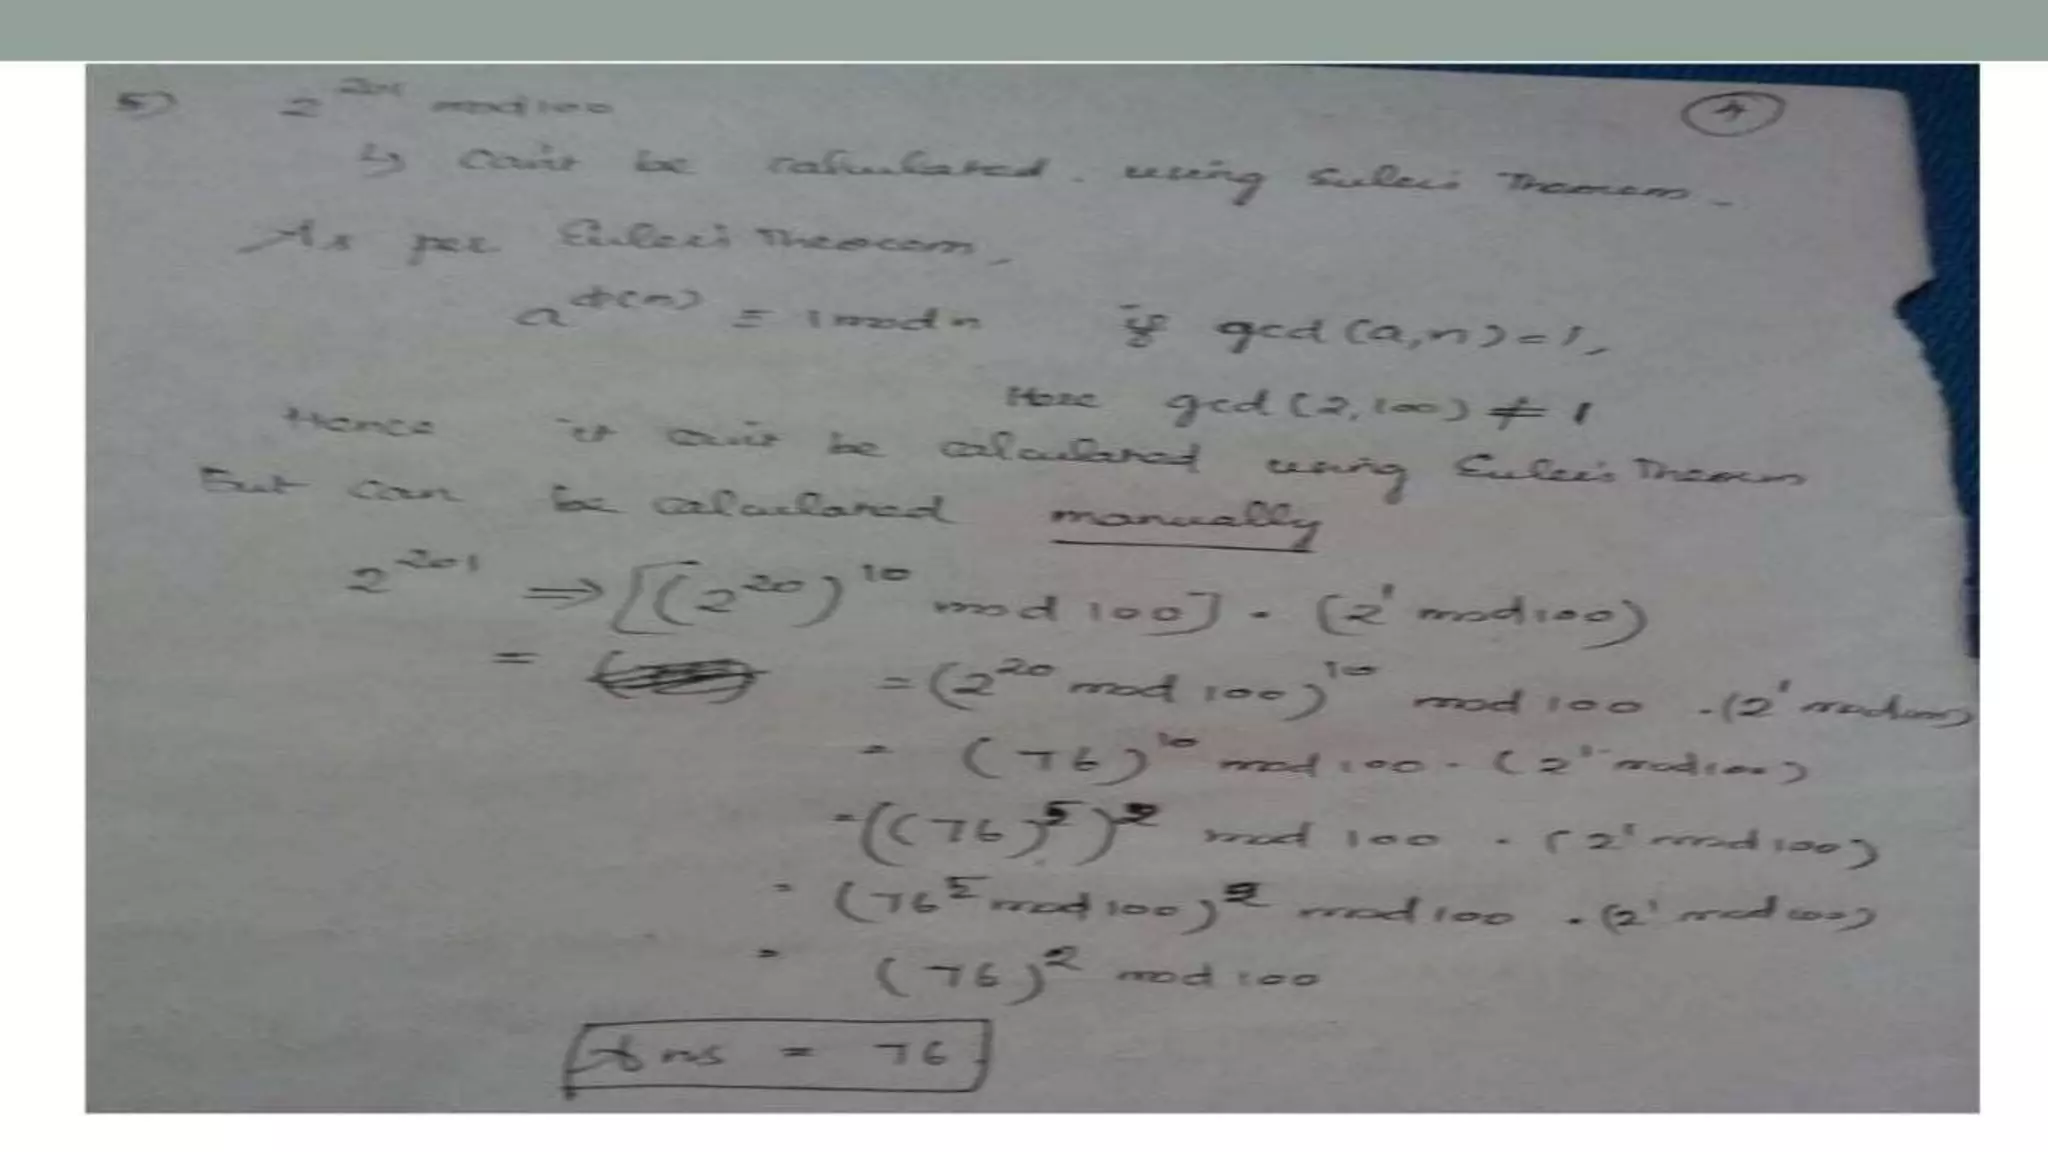 5) 2^201 mod 100
④
↳ Can't be calculated using Euler's Theorem.
As per Euler's Theorem,
a^ϕ(n) ≡ 1 mod n if gcd (a,n) = 1,
Here gcd (2,100) ≠ 1
Hence it can't be calculated using Euler's Theorem
But can be calculated manually
2^201 ⇒ [(2^20)^10 mod 100] . (2^1 mod 100)
= = (2^20 mod 100)^10 mod 100 . (2^1 mod 100)
= (76)^10 mod 100 . (2^1 mod 100)
= ((76)^5)^2 mod 100 . (2^1 mod 100)
= (76^5 mod 100)^2 mod 100 . (2^1 mod 100)
= (76)^2 mod 100
Ans = 76